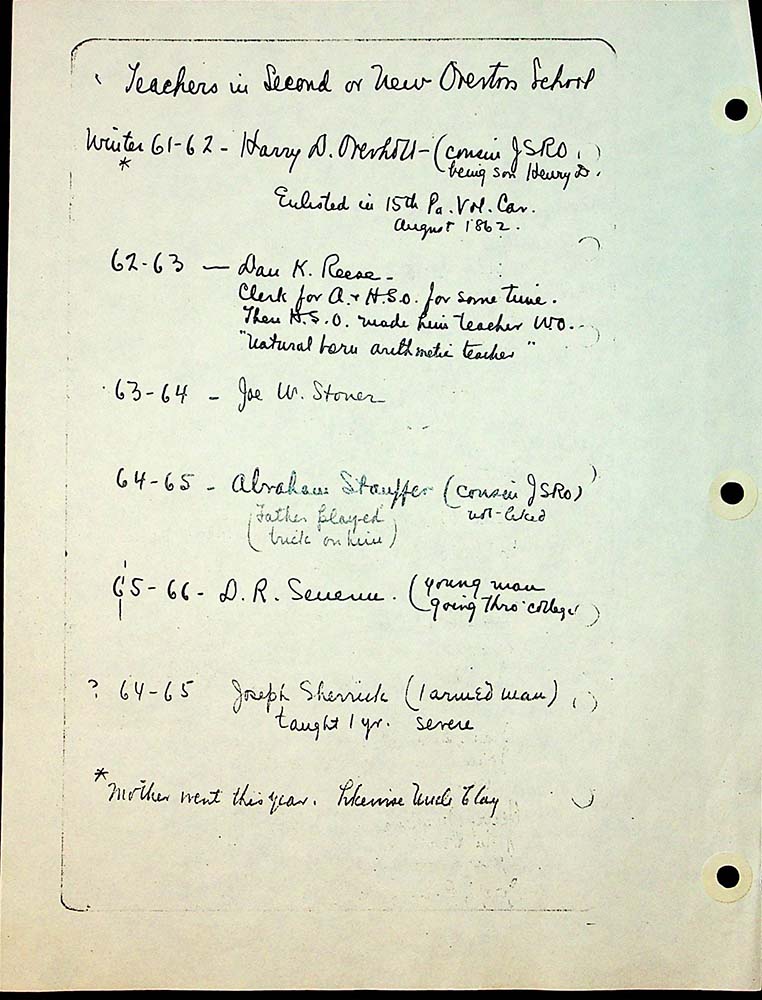 Teachers in Second or New Overton School
Winter 61-62 - Harry D. Overholt - (cousin JSRO,
* being son Henry D.)
Enlisted in 15th Pa. Vol. Cav.
August 1862.
62-63 — Dan K. Reese -
Clerk for A. + H.S.O. for some time.
Then H.S.O. made him teacher WO.
"natural born arithmetic teacher"
63-64 - Joe W. Stoner
64-65 - Abraham Stauffer (cousin JSRO)
(Father played not liked
trick on him)
65-66 - D. R. (young man
going thro' college)
? 64-65 Joseph Sherrick (1 armed man)
taught 1 yr. severe
* Mother went this year. Likewise Uncle Clay